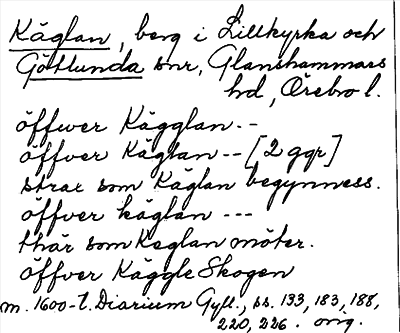 Käglan, berg i Lillkyrka och
Götlunda snr, Glanshammars
hd, Örebro l.
öffwer Kägglan. --
öffver Käglan -- [2 ggr]
strax som Käglan begynness.
öffver käglan ---
thär som Keglan möter.
öffver Käggle Skogen
m. 1600-t. Diarium Gyll., ss. 133, 183, 188,
220, 226. orig.